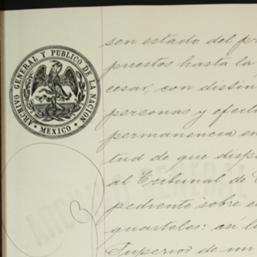 ARCHIVO GENERAL Y PUBLICO DE LA NACION
• MEXICO •
son estado del
puestos hasta la
cosar, con distin
personas y efecto
permanencia en
tud de que disp
al Tribunal de
pediente sobre e
quarteles: asi l
Superior de un